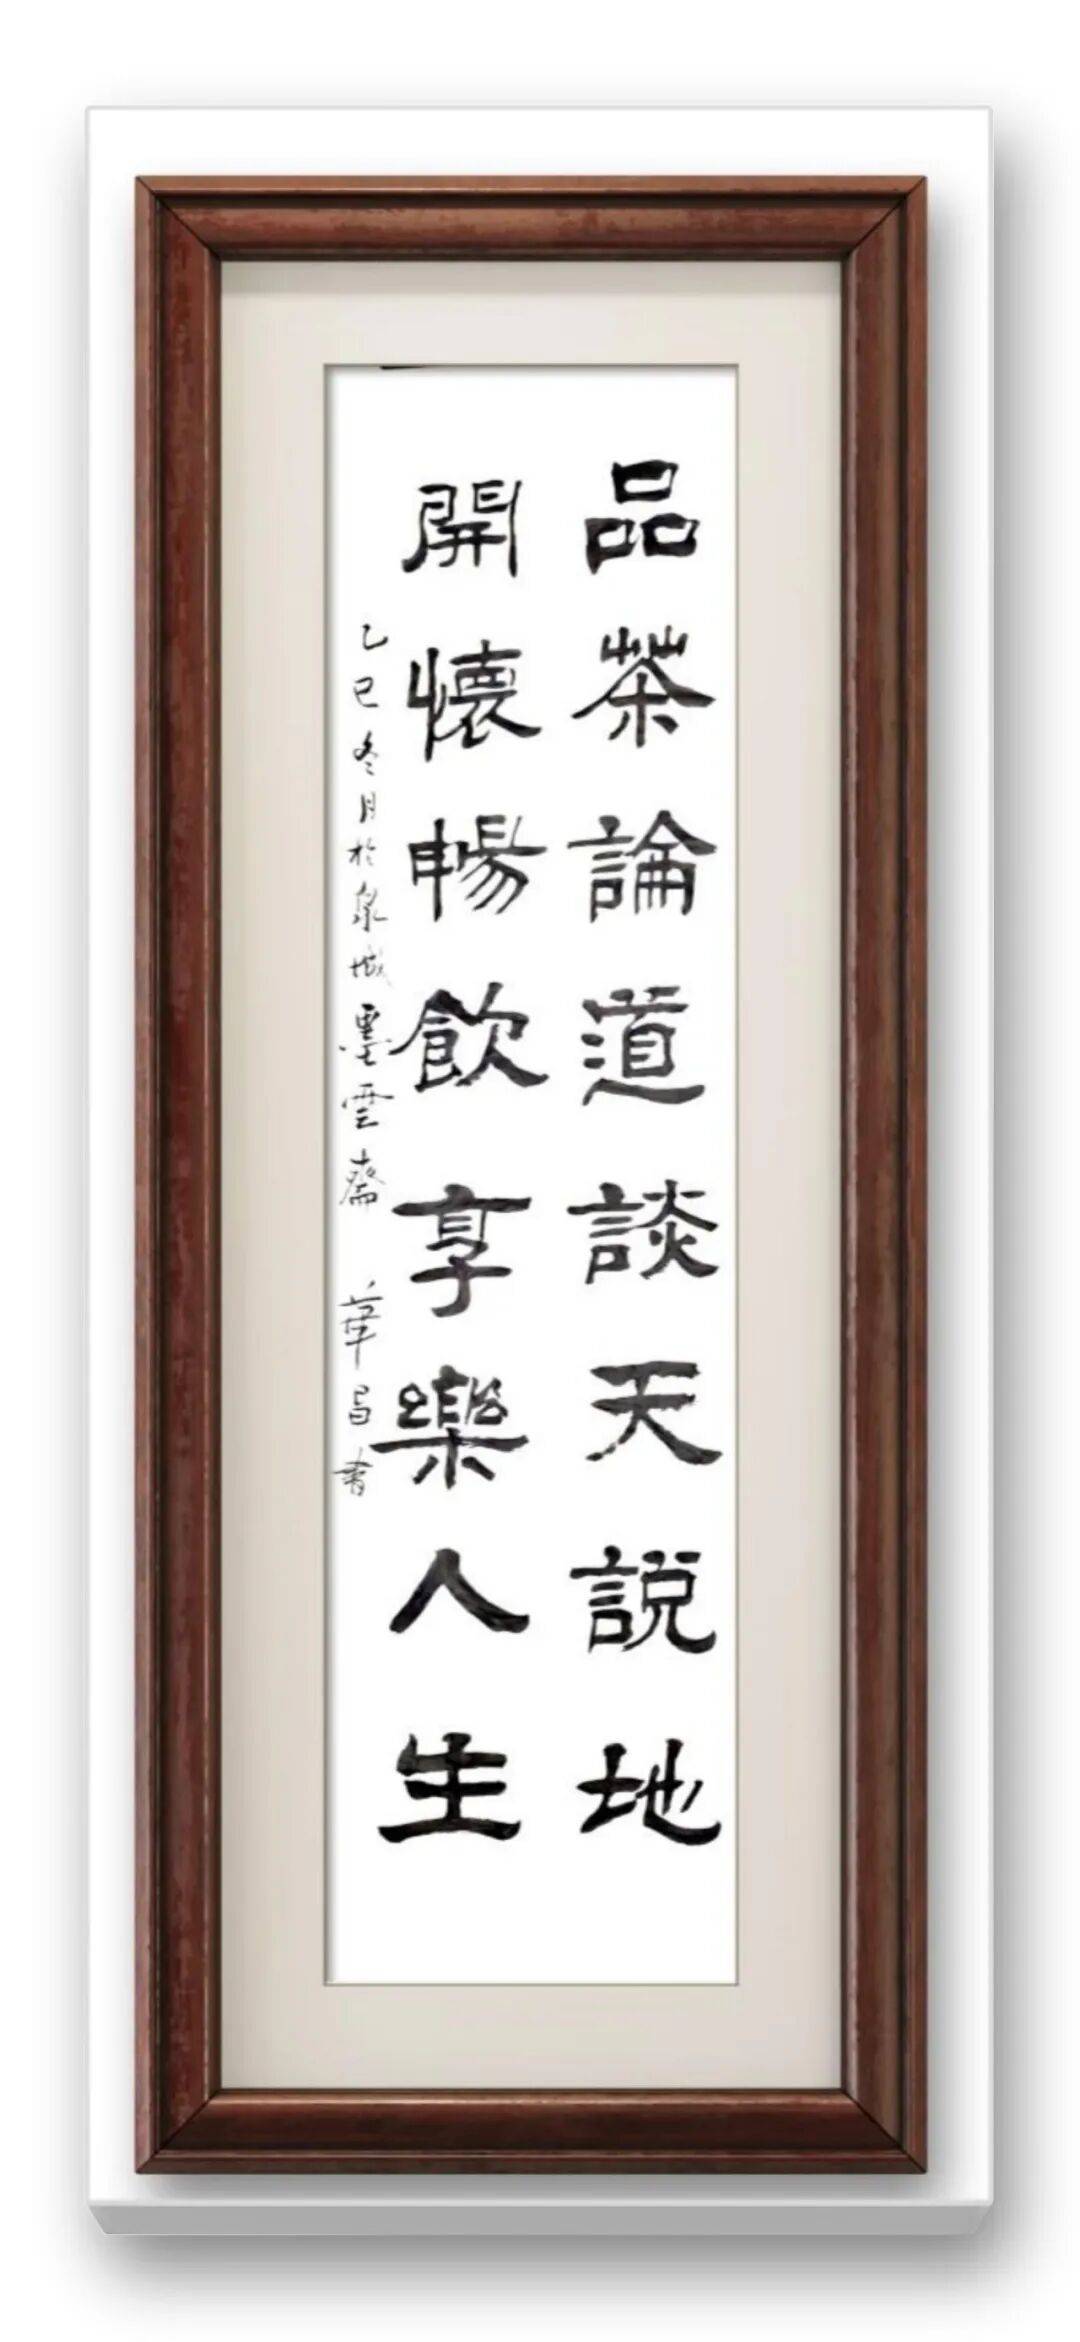 品茶論道談天說地
開懷暢飲享樂人生
乙巳冬月於泉城墨雲齋 華昌書